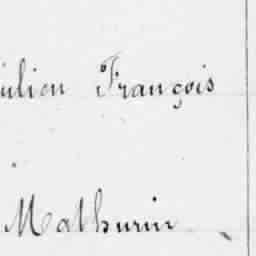 ulien François
Mathurin